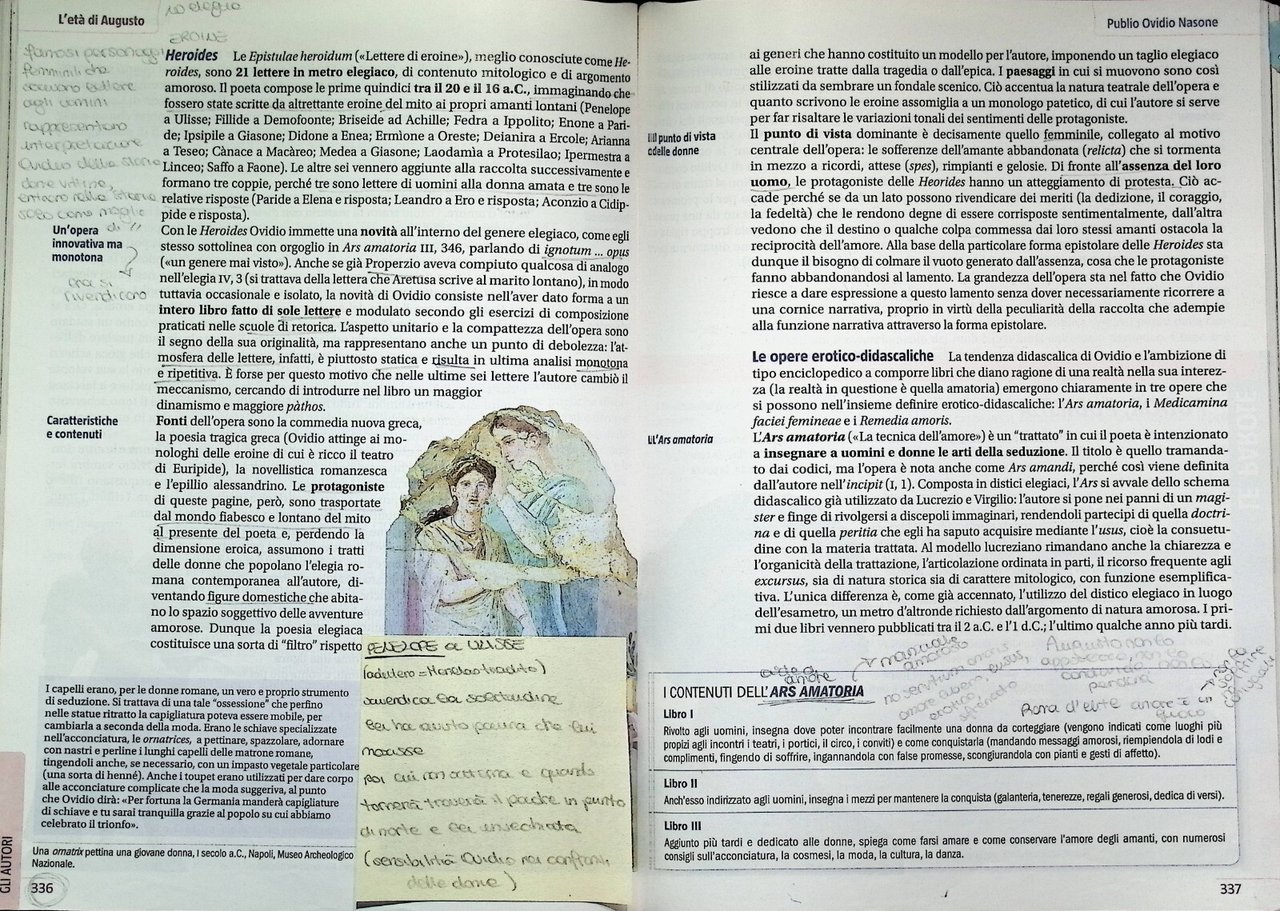 L'età di Augusto
EROINE
famosi personaggi
femminili che
agli uomini
rappresentano
Ovidio della storia
Heroides Le Epistulae heroidum («Lettere di eroine»), meglio conosciute come He-
roides, sono 21 lettere in metro elegiaco, di contenuto mitologico e di argomento
amoroso. Il poeta compose le prime quindici tra il 20 e il 16 a.C., immaginando che
fossero state scritte da altrettante eroine del mito ai propri amanti lontani (Penelope
a Ulisse; Fillide a Demofoonte; Briseide ad Achille; Fedra a Ippolito; Enone a Pari-
de; Ipsipile a Giasone; Didone a Enea; Ermìone a Oreste; Deianira a Ercole; Arianna
a Teseo; Cànace a Macàreo; Medea a Giasone; Laodamìa a Protesilao; Ipermestra a
Linceo; Saffo a Faone). Le altre sei vennero aggiunte alla raccolta successivamente e
formano tre coppie, perché tre sono lettere di uomini alla donna amata e tre sono le
relative risposte (Paride a Elena e risposta; Leandro a Ero e risposta; Aconzio a Cidip-
pide e risposta).
Un'opera
innovativa ma
monotona
ora si
rivendicano
Con le Heroides Ovidio immette una novità all'interno del genere elegiaco, come egli
stesso sottolinea con orgoglio in Ars amatoria III, 346, parlando di ignotum ... opus
(«un genere mai visto»). Anche se già Properzio aveva compiuto qualcosa di analogo
nell'elegia IV, 3 (si trattava della lettera che Aretusa scrive al marito lontano), in modo
tuttavia occasionale e isolato, la novità di Ovidio consiste nell'aver dato forma a un
intero libro fatto di sole lettere e modulato secondo gli esercizi di composizione
praticati nelle scuole di retorica. L'aspetto unitario e la compattezza dell'opera sono
il segno della sua originalità, ma rappresentano anche un punto di debolezza: l'at-
mosfera delle lettere, infatti, è piuttosto statica e risulta in ultima analisi monotona
e ripetitiva. È forse per questo motivo che nelle ultime sei lettere l'autore cambiò il
meccanismo, cercando di introdurre nel libro un maggior
dinamismo e maggiore pàthos.
Caratteristiche
e contenuti
Fonti dell'opera sono la commedia nuova greca,
la poesia tragica greca (Ovidio attinge ai mo-
nologhi delle eroine di cui è ricco il teatro
di Euripide), la novellistica romanzesca
e l'epillio alessandrino. Le protagoniste
di queste pagine, però, sono trasportate
dal mondo fiabesco e lontano del mito
al presente del poeta e, perdendo la
dimensione eroica, assumono i tratti
delle donne che popolano l'elegia ro-
mana contemporanea all'autore, di-
ventando figure domestiche che abita-
no lo spazio soggettivo delle avventure
amorose. Dunque la poesia elegiaca
costituisce una sorta di "filtro" rispetto
PENELOPE a ULISSE
(adultero = Menelao tradito)
lei ha avuto paura che lui
morisse
poi cui non ottima e quando
tornerà troverà il padre in punto
di morte e lei invecchiata
(sensibilità Ovidio nei confronti
delle donne)
I capelli erano, per le donne romane, un vero e proprio strumento
di seduzione. Si trattava di una tale "ossessione" che perfino
nelle statue ritratto la capigliatura poteva essere mobile, per
cambiarla a seconda della moda. Erano le schiave specializzate
nell'acconciatura, le ornatrices, a pettinare, spazzolare, adornare
con nastri e perline i lunghi capelli delle matrone romane,
tingendoli anche, se necessario, con un impasto vegetale particolare
(una sorta di henné). Anche i toupet erano utilizzati per dare corpo
alle acconciature complicate che la moda suggeriva, al punto
che Ovidio dirà: «Per fortuna la Germania manderà capigliature
di schiave e tu sarai tranquilla grazie al popolo su cui abbiamo
celebrato il trionfo».
Una ornatrix pettina una giovane donna, I secolo a.C., Napoli, Museo Archeologico
Nazionale.
GLI AUTORI
336
Publio Ovidio Nasone
ai generi che hanno costituito un modello per l'autore, imponendo un taglio elegiaco
alle eroine tratte dalla tragedia o dall'epica. I paesaggi in cui si muovono sono così
stilizzati da sembrare un fondale scenico. Ciò accentua la natura teatrale dell'opera e
quanto scrivono le eroine assomiglia a un monologo patetico, di cui l'autore si serve
per far risaltare le variazioni tonali dei sentimenti delle protagoniste.
Il punto di vista
delle donne
Il punto di vista dominante è decisamente quello femminile, collegato al motivo
centrale dell'opera: le sofferenze dell'amante abbandonata (relicta) che si tormenta
in mezzo a ricordi, attese (spes), rimpianti e gelosie. Di fronte all'assenza del loro
uomo, le protagoniste delle Heorides hanno un atteggiamento di protesta. Ciò ac-
cade perché se da un lato possono rivendicare dei meriti (la dedizione, il coraggio,
la fedeltà) che le rendono degne di essere corrisposte sentimentalmente, dall'altra
vedono che il destino o qualche colpa commessa dai loro stessi amanti ostacola la
reciprocità dell'amore. Alla base della particolare forma epistolare delle Heroides sta
dunque il bisogno di colmare il vuoto generato dall'assenza, cosa che le protagoniste
fanno abbandonandosi al lamento. La grandezza dell'opera sta nel fatto che Ovidio
riesce a dare espressione a questo lamento senza dover necessariamente ricorrere a
una cornice narrativa, proprio in virtù della peculiarità della raccolta che adempie
alla funzione narrativa attraverso la forma epistolare.
Le opere erotico-didascaliche La tendenza didascalica di Ovidio e l'ambizione di
tipo enciclopedico a comporre libri che diano ragione di una realtà nella sua interez-
za (la realtà in questione è quella amatoria) emergono chiaramente in tre opere che
si possono nell'insieme definire erotico-didascaliche: l'Ars amatoria, i Medicamina
faciei femineae e i Remedia amoris.
L'Ars amatoria
L'Ars amatoria («La tecnica dell'amore») è un "trattato" in cui il poeta è intenzionato
a insegnare a uomini e donne le arti della seduzione. Il titolo è quello tramanda-
to dai codici, ma l'opera è nota anche come Ars amandi, perché così viene definita
dall'autore nell'incipit (I, 1). Composta in distici elegiaci, l'Ars si avvale dello schema
didascalico già utilizzato da Lucrezio e Virgilio: l'autore si pone nei panni di un magi-
ster e finge di rivolgersi a discepoli immaginari, rendendoli partecipi di quella doctri-
na e di quella peritia che egli ha saputo acquisire mediante l'usus, cioè la consuetu-
dine con la materia trattata. Al modello lucreziano rimandano anche la chiarezza e
l'organicità della trattazione, l'articolazione ordinata in parti, il ricorso frequente agli
excursus, sia di natura storica sia di carattere mitologico, con funzione esemplifica-
tiva. L'unica differenza è, come già accennato, l'utilizzo del distico elegiaco in luogo
dell'esametro, un metro d'altronde richiesto dall'argomento di natura amorosa. I pri-
mi due libri vennero pubblicati tra il 2 a.C. e l'1 d.C.; l'ultimo qualche anno più tardi.
manuale
amoroso
no servitium amoris
I CONTENUTI DELL'ARS AMATORIA
Libro I
Rivolto agli uomini, insegna dove poter incontrare facilmente una donna da corteggiare (vengono indicati come luoghi più
propizi agli incontri i teatri, i portici, il circo, i conviti) e come conquistarla (mandando messaggi amorosi, riempiendola di lodi e
complimenti, fingendo di soffrire, ingannandola con false promesse, scongiurandola con pianti e gesti di affetto).
Libro II
Anch'esso indirizzato agli uomini, insegna i mezzi per mantenere la conquista (galanteria, tenerezze, regali generosi, dedica di versi).
Libro III
Aggiunto più tardi e dedicato alle donne, spiega come farsi amare e come conservare l'amore degli amanti, con numerosi
consigli sull'acconciatura, la cosmesi, la moda, la cultura, la danza.
337